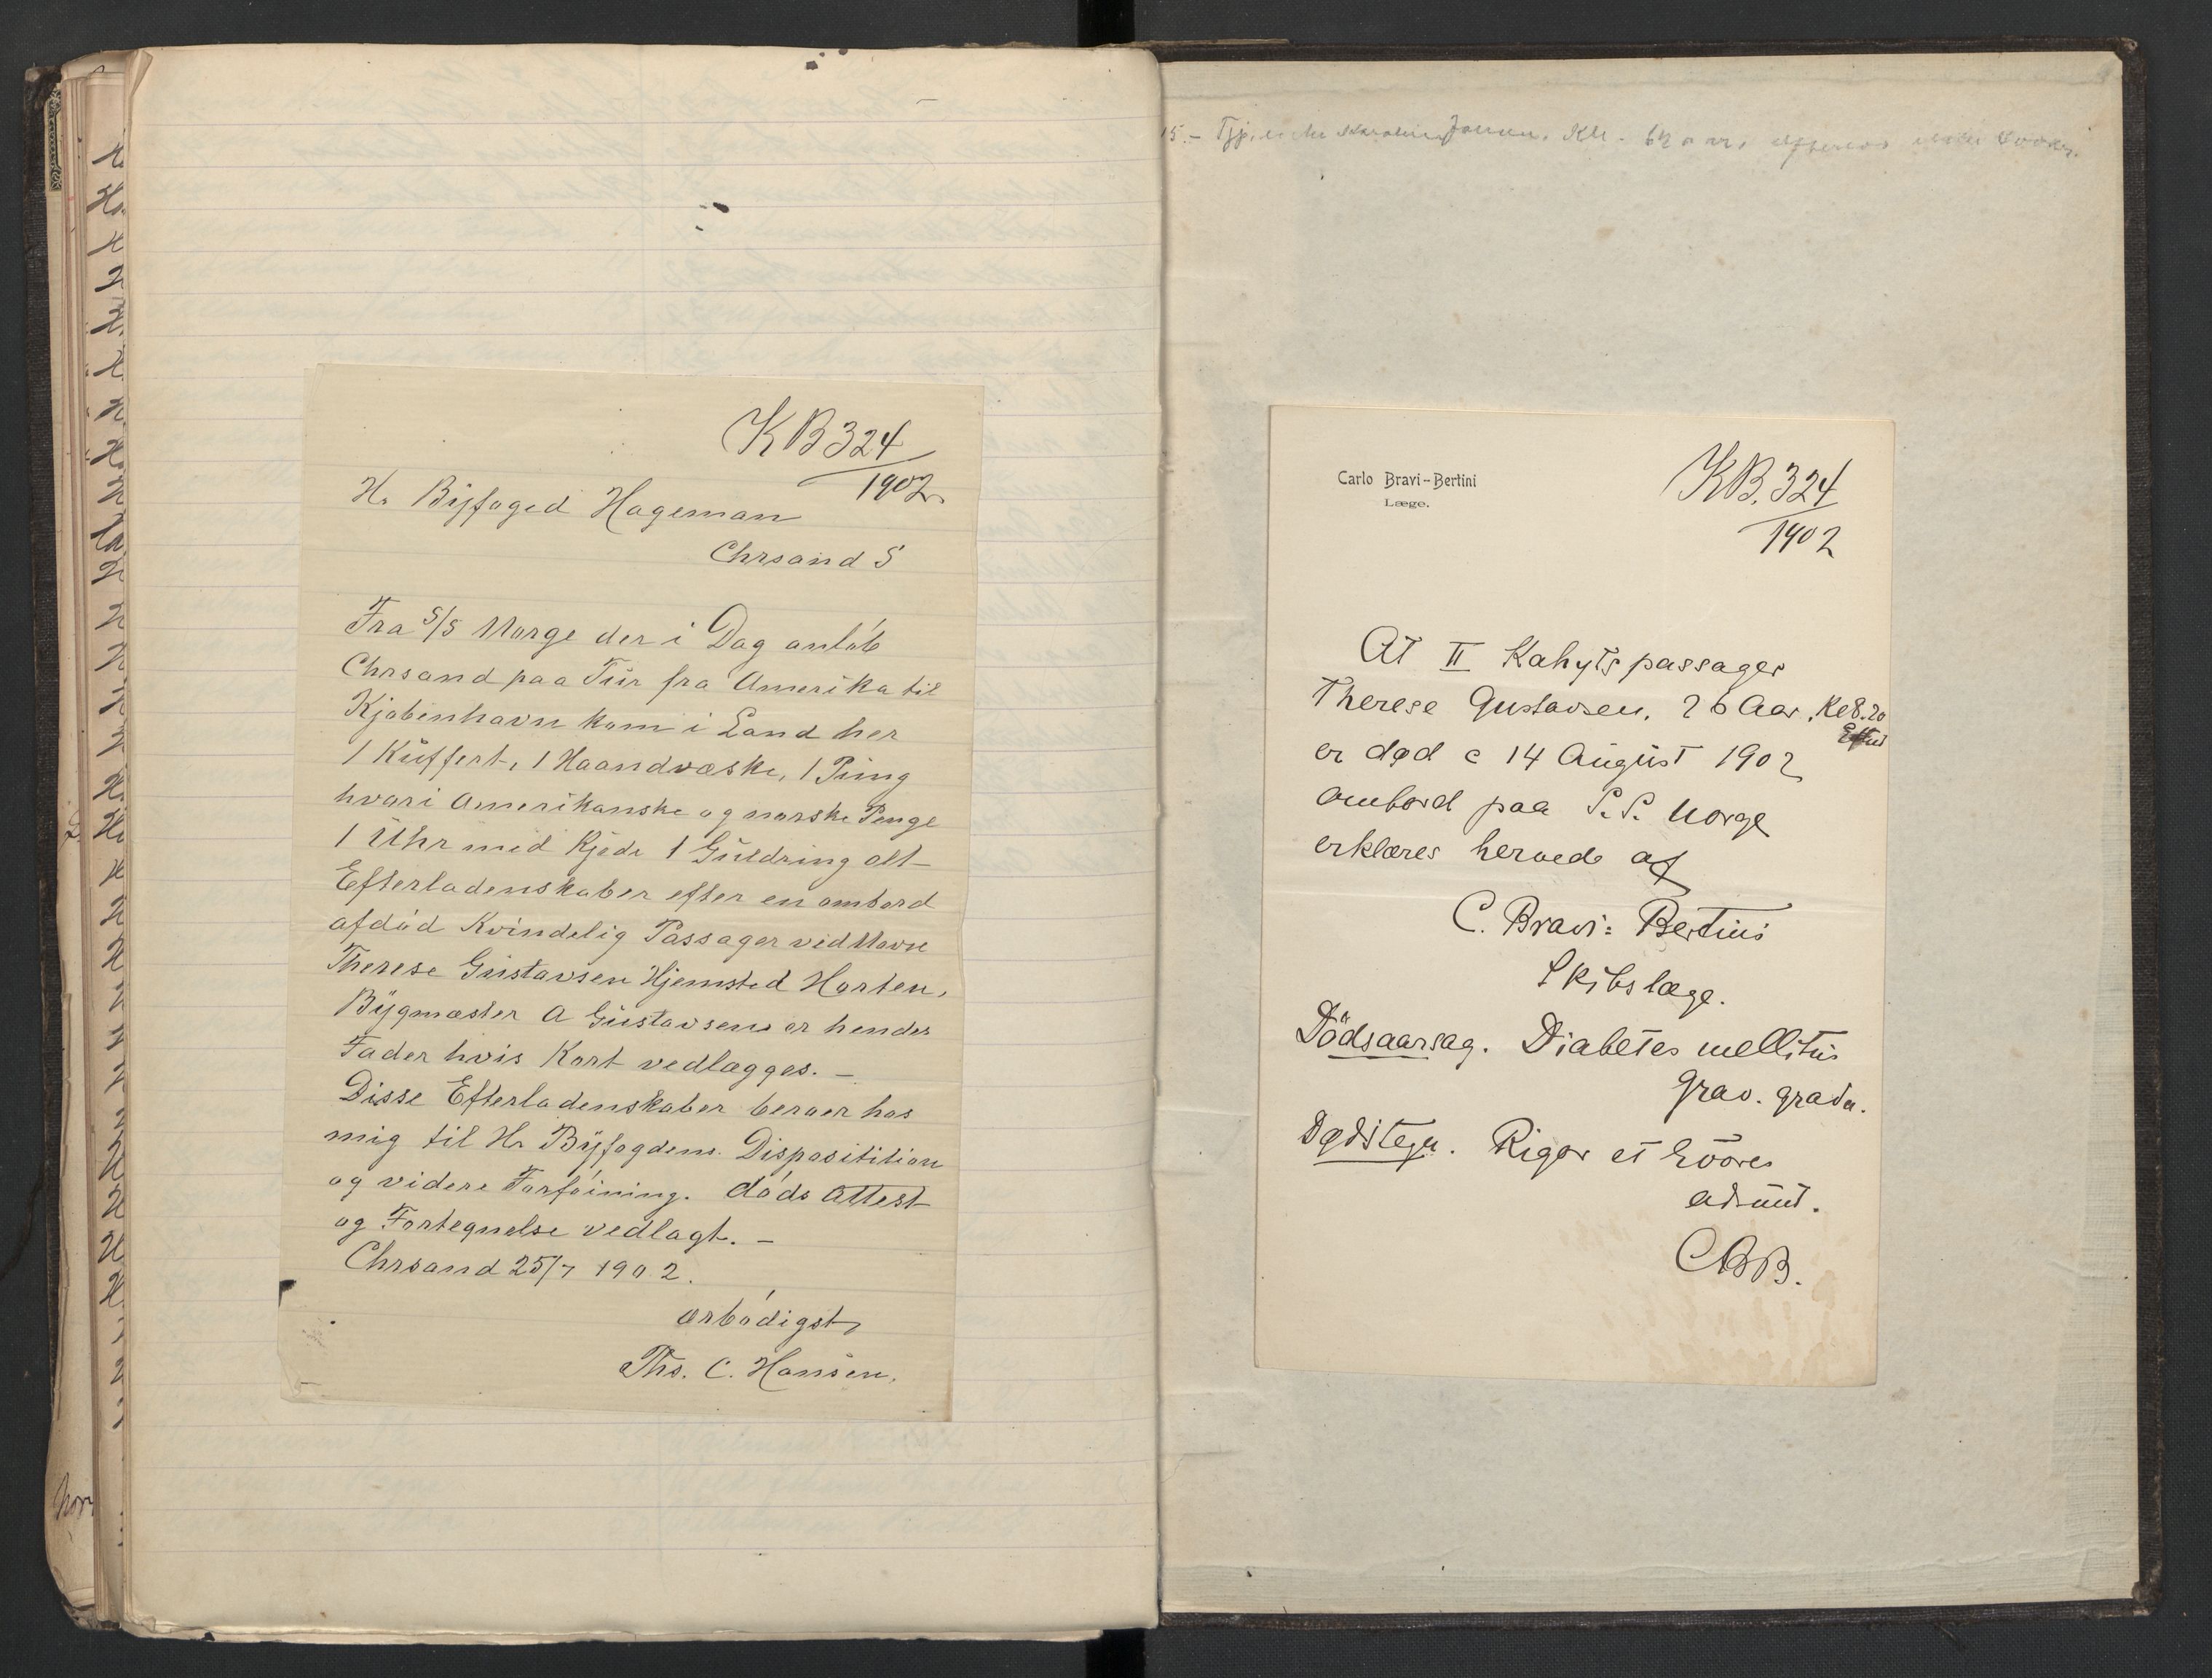 KB 324
1902
Hr Byfoged Hageman
Chrsand S
Fra S/S Norge der i Dag anløb
Chrsand paa Tur fra Amerika til
Kjøbenhavn kom i Land her
1 Kuffert, 1 Haandvæske, 1 Pung
hvori Amerikanske og norske Penge
1 Uhr med Kjede 1 Guldring alt
Efterladenskaber efter en ombord
afdød Kvindelig Passager ved Navn
Therese Gustavsen Hjemsted Horten,
Bygmester A Gustavsen er hendes
Fader hvis Kort vedlægges. —
Disse Efterladenskaber beroer hos
mig til Hr Byfogdens Dispositition
og videre Forføining. døds Attest
og Fortegnelse vedlagt. —
Chrsand 25/7 1902.
ærbødigst,
Ths. C. Hansen,
15. — Jensen. 62 aar,
Carlo Bravi-Bertini
Læge.
KB. 324
1902
At II Kahyts passager
Therese Gustavsen. 26 Aar, Kl 8.20
er død d 14 August 1902
ombord paa S.S. Norge
erklæres herved af
C. Bravi-Bertini
Skibslæge.
Dödsaarsag. Diabetes mellitus
grav. gradu.
Dødstegn. Rigor et livores
adsunt.
CBB.